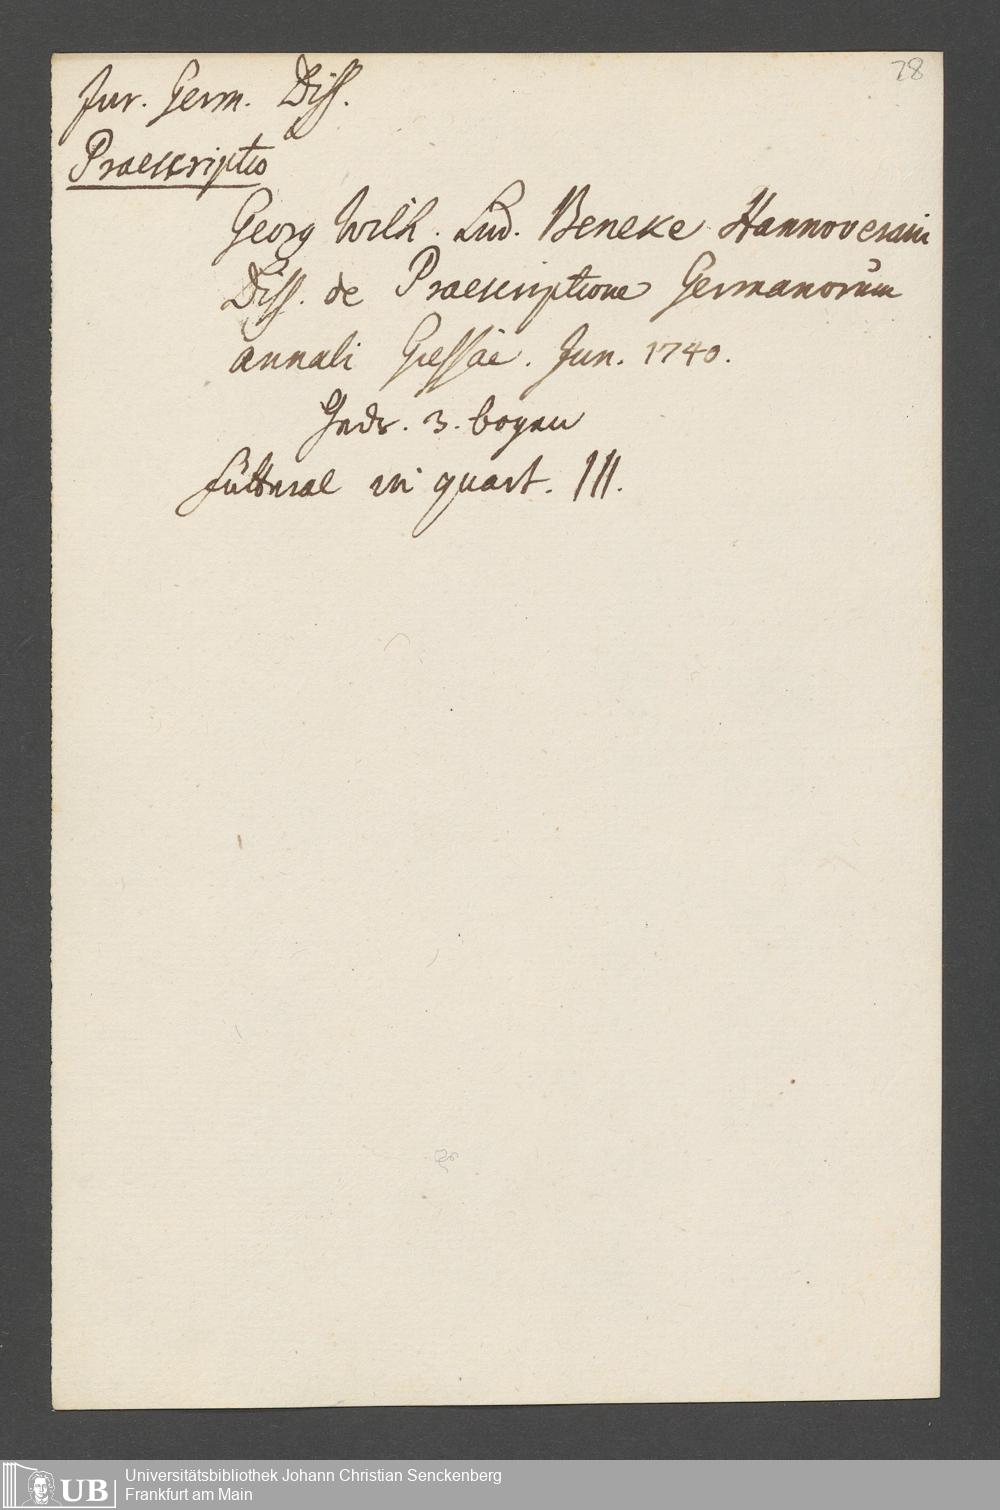 28
Jur. Germ. Diss.
Praescriptio
Georg Wilh. Lud. Beneke Hannoverani
Diss. de Praescriptione Germanorum
annali Giessae. Jun. 1740.
3. bogen
Futteral in quart. III.
UB
Universitätsbibliothek Johann Christian Senckenberg
Frankfurt am Main